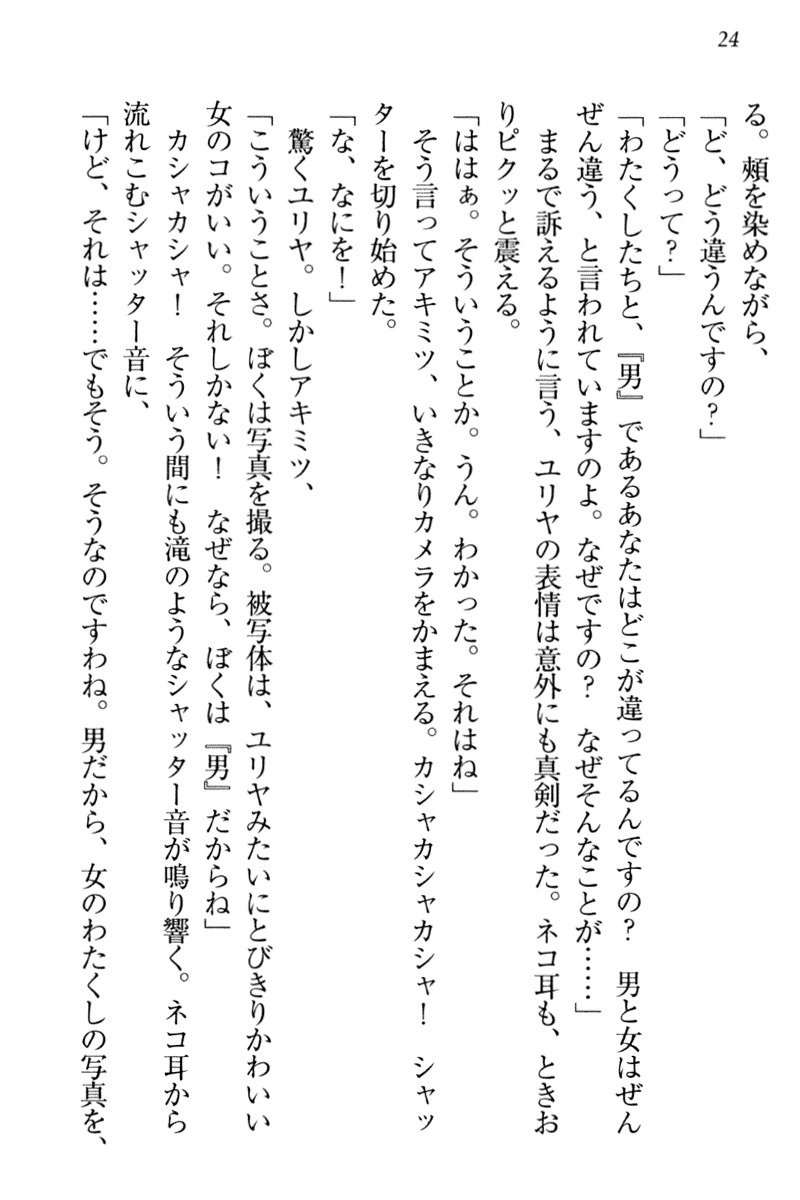 24
る。頰を染めながら、
「ど、どう違うんですの？」
「どうって？」
「わたくしたちと、『男』であるあなたはどこが違ってるんですの？　男と女はぜん
ぜん違う、と言われていますのよ。なぜですの？　なぜそんなことが……」
　まるで訴えるように言う、ユリヤの表情は意外にも真剣だった。ネコ耳も、ときお
りピクッと震える。
「ははぁ。そういうことか。うん。わかった。それはね」
　そう言ってアキミツ、いきなりカメラをかまえる。カシャカシャカシャ！　シャッ
ターを切り始めた。
「な、なにを！」
　驚くユリヤ。しかしアキミツ、
「こういうことさ。ぼくは写真を撮る。被写体は、ユリヤみたいにとびきりかわいい
女のコがいい。それしかない！　なぜなら、ぼくは『男』だからね」
　カシャカシャ！　そういう間にも滝のようなシャッター音が鳴り響く。ネコ耳から
流れこむシャッター音に、
「けど、それは……でもそう。そうなのですわね。男だから、女のわたくしの写真を、